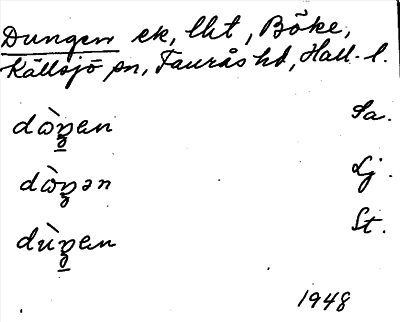 Dungen ek, lht, Böke,
Källsjö sn, Faurås hd, Hall. l.
dòŋen Sa.
dòŋən Lj.
dùŋen St.
1948